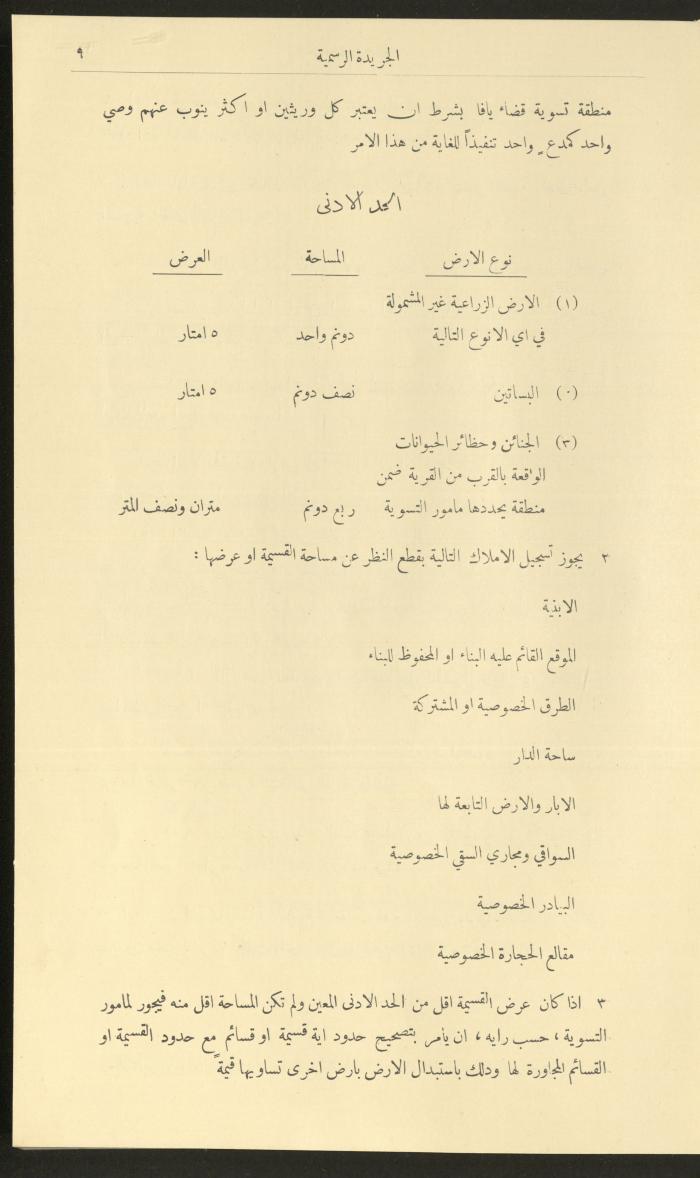 الجريدة الرسمية ٩
منطقة تسوية قضاء يافا بشرط ان يعتبر كل وريثين او اكثر ينوب عنهم وصي
واحد كمدعٍ واحد تنفيذاً للغاية من هذا الامر
الحد الادنى
نوع الارض المساحة العرض
(١) الارض الزراعية غير المشمولة
في اي الانوع التالية دونم واحد ٥ امتار
(٠) البساتين نصف دونم ٥ امتار
(٣) الجنائن وحظائر الحيوانات
الواقعة بالقرب من القرية ضمن
منطقة يحددها مامور التسوية ربع دونم متران ونصف المتر
٢ يجوز تسجيل الاملاك التالية بقطع النظر عن مساحة القسيمة او عرضها :
الابنية
الموقع القائم عليه البناء او المحفوظ للبناء
الطرق الخصوصية او المشتركة
ساحة الدار
الابار والارض التابعة لها
السواقي ومجاري السقي الخصوصية
البيادر الخصوصية
مقالع الحجارة الخصوصية
٣ اذا كان عرض القسيمة اقل من الحد الادنى المعين ولم تكن المساحة اقل منه فيجور لمامور
التسوية ، حسب رايه ، ان يامر بتصحيح حدود اية قسيمة او قسائم مع حدود القسيمة او
القسائم المجاورة لها وذلك باستبدال الارض بارض اخرى تساويها قيمةً